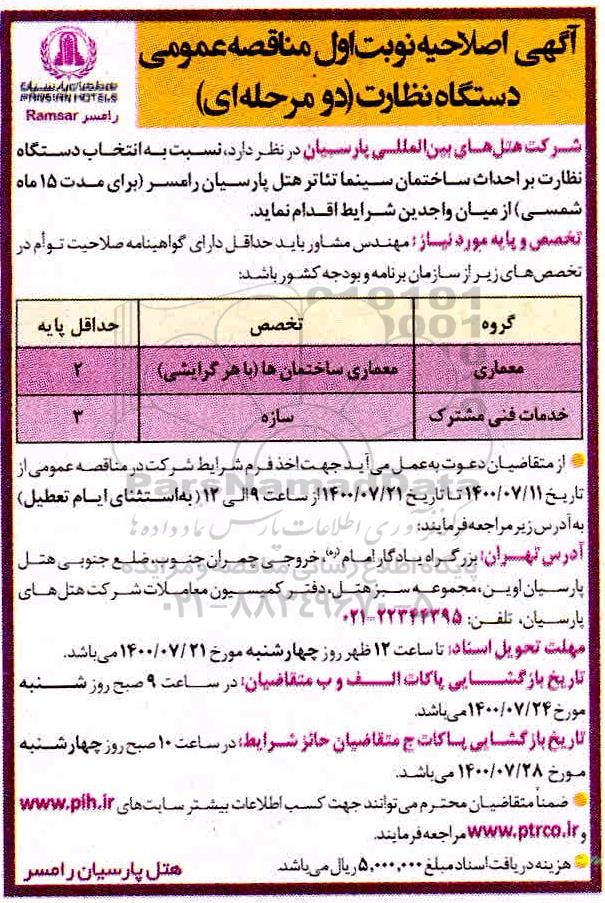 آگهی اصلاحیه نوبت اول مناقصه عمومی
دستگاه نظارت (دو مرحله‌ای)
PARSIAN HOTELS
رامسر Ramsar
شرکت هتل‌های بین‌المللی پارسیان در نظر دارد، نسبت به انتخاب دستگاه
نظارت بر احداث ساختمان سینما تئاتر هتل پارسیان رامسر (برای مدت ۱۵ ماه
شمسی) از میان واجدین شرایط اقدام نماید.
تخصص و پایه مورد نیاز: مهندس مشاور باید حداقل دارای گواهینامه صلاحیت توأم در
تخصص‌های زیر از سازمان برنامه و بودجه کشور باشد:
گروه تخصص حداقل پایه
معماری معماری ساختمان ها (با هر گرایشی) ۲
خدمات فنی مشترک سازه ۳
از متقاضیان دعوت به عمل می‌آید جهت اخذ فرم شرایط شرکت در مناقصه عمومی از
تاریخ ۱۴۰۰/۰۷/۱۱ تا تاریخ ۱۴۰۰/۰۷/۲۱ از ساعت ۹ الی ۱۲ (به‌استثنای ایام تعطیل)
به آدرس زیر مراجعه فرمایند:
آدرس تهران: بزرگراه یادگار امام (ره)، خروجی چمران جنوب، ضلع جنوبی هتل
پارسیان اوین، مجموعه سبز هتل، دفتر کمیسیون معاملات شرکت هتل‌های
پارسیان، تلفن: ۲۲۳۴۴۳۹۵-۰۲۱
مهلت تحویل اسناد: تا ساعت ۱۲ ظهر روز چهارشنبه مورخ ۱۴۰۰/۰۷/۲۱ می‌باشد.
تاریخ بازگشایی پاکات الف و ب متقاضیان: در ساعت ۹ صبح روز شنبه
مورخ ۱۴۰۰/۰۷/۲۴ می‌باشد.
تاریخ بازگشایی پاکات ج متقاضیان حائز شرایط: در ساعت ۱۰ صبح روز چهارشنبه
مورخ ۱۴۰۰/۰۷/۲۸ می‌باشد.
ضمناً متقاضیان محترم می‌توانند جهت کسب اطلاعات بیشتر سایت‌های www.pih.ir
و www.ptrco.ir مراجعه فرمایند.
هزینه دریافت اسناد مبلغ ۵,۰۰۰,۰۰۰ ریال می‌باشد.
هتل پارسیان رامسر
ParsNamadData
پایگاه اطلاع رسانی مناقصه و مزایده
۰۲۱-۸۸۳۴۹۶۷۰-۵